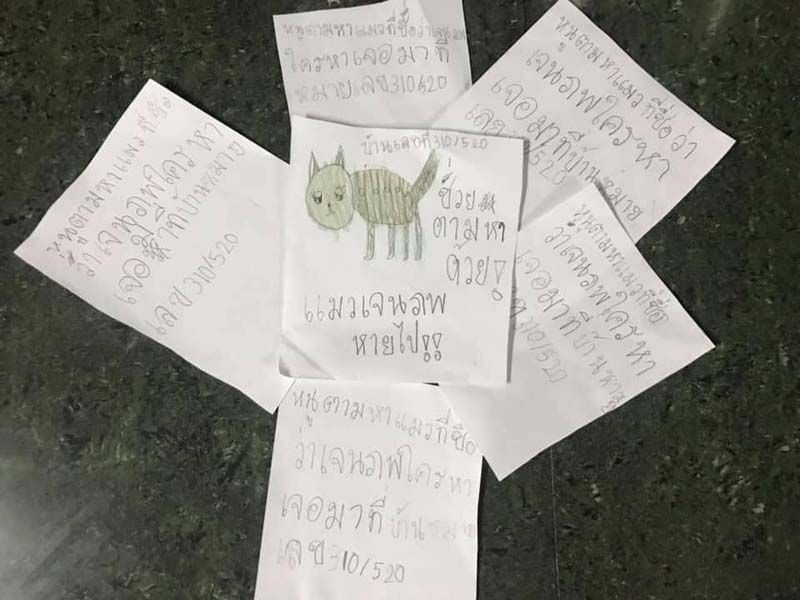 หนูตามหาแมวที่ชื่อว่าเจนภพ
ใครหาเจอมาที่
หมายเลข310/520
หนูตามหาแมวที่ชื่อว่า
เจนภพใครหา
เจอมาที่บ้านหมาย
เลข310/520
หนูตามหาแมวที่ชื่อ
ว่าเจนภพใครหา
เจอ ที่บ้านหมาย
เลข310/520
บ้านเลขที่310/520
ช่วย
ตามหา
ด้วย!
แมวเจนภพ
หายไป
หนูตามหาแมวที่ชื่อ
ว่าเจนภพใครหา
เจอมาที่บ้านหมาย
เลข310/520
หนูตามหาแมวที่ชื่อ
ว่าเจนภพใครหา
เจอมาที่บ้านหมาย
เลข310/520